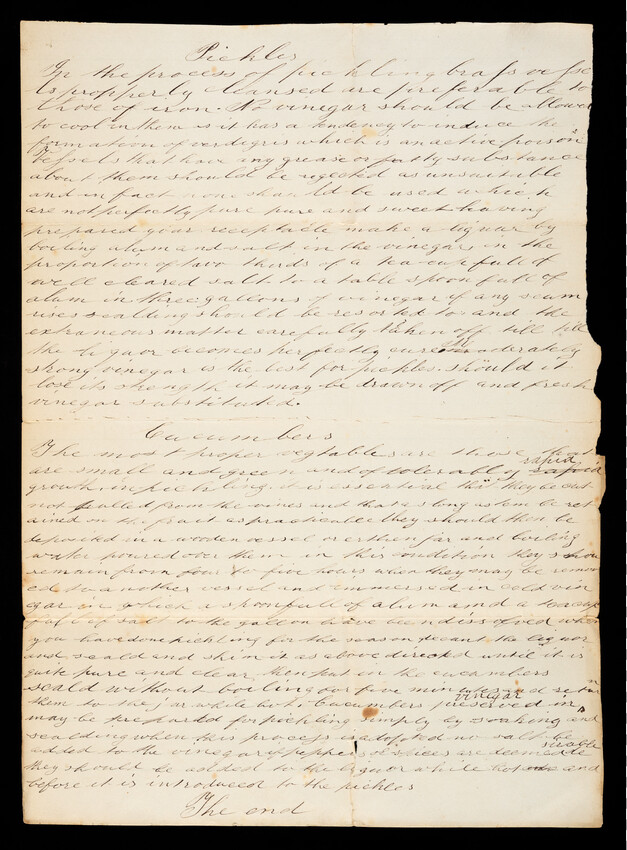 Pickles
In the process of pickling brass vesse
ls propperly cleansed are preferable to
those of iron. No vinegar should be allowed
to cool in them as it has a tendency to induce the
formation of verdigris which is an active poison
Vessels that have any grease or fatty substance
about them should be rejected as unsuitible
and in fact none should be used which
are not perfectly pure pure and sweet having
prepared your receptacle make a liquor by
boiling alum and salt in the vinegar in the
proportion of two thirds of a tea cup full of
well cleared salt to a table spoon full of
alum in three gallons of vinegar if any scum
rises scalding should be resorted to and the
extraneous matter carefully taken off till till
the liquor becomes perfectly pure moderately
strong vinegar is the best for pickles should it
lose its strength it may be drawn off and fresh
vinegar substituted.
Cucumbers
The most proper vegtables are those that
are small and green and of tolerably rapid
growth in pickling. it is essential that they be cut
not pulled from the vines and that as long a stem be ret
ained on the fruit as practicable they should then be
deposited in a wooden vessel or erthen jar and boiling
water poured over them in this condition they should
remain from four to five hours when they may be remov
ed to another vessel and immersed in cold vin
egar in which a spoonfull of alum and a teacup
full of salt to the gallon have been dissolved when
you have done pickling for the season decant the liquor
and scald and skim it as above directed until it is
quite pure and clear then put in the cucumbers
scald without boiling our five minutes and return
them to the jar while hot. Cucumbers preserved in vinegar
may be prepared for pickling simply by soaking and
scalding when this process is adopted no salt be
added to the vinegar if pepper or spices are desirable
they should be added to the liquor while hot and
before it is introduced to the pickles
The end